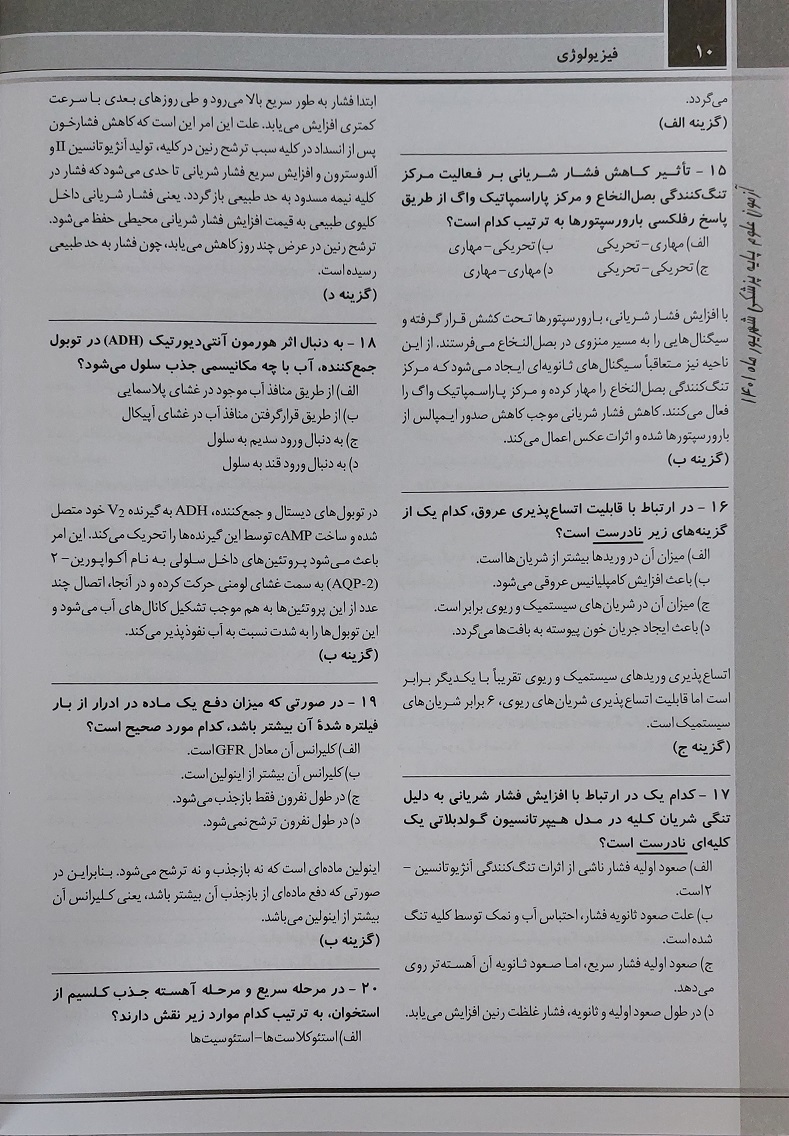 ۱۰
فیزیولوژی
آزمون علوم پایه پزشکی شهریور ماه ۱۴۰۱
می‌گردد.
(گزینه الف)
۱۵ - تأثیر کاهش فشار شریانی بر فعالیت مرکز
تنگ‌کنندگی بصل‌النخاع و مرکز پاراسمپاتیک واگ از طریق
پاسخ رفلکسی بارورسپتورها به ترتیب کدام است؟
الف) مهاری- تحریکی ب) تحریکی- مهاری
ج) تحریکی- تحریکی د) مهاری- مهاری
با افزایش فشار شریانی، بارورسپتورها تحت کشش قرار گرفته و
سیگنال‌هایی را به مسیر منزوی در بصل‌النخاع می‌فرستند. از این
ناحیه نیز متعاقباً سیگنال‌های ثانویه‌ای ایجاد می‌شود که مرکز
تنگ‌کنندگی بصل‌النخاع را مهار کرده و مرکز پاراسمپاتیک واگ را
فعال می‌کنند. کاهش فشار شریانی موجب کاهش صدور ایمپالس از
بارورسپتورها شده و اثرات عکس اعمال می‌کند.
(گزینه ب)
۱۶ - در ارتباط با قابلیت اتساع‌پذیری عروق، کدام یک از
گزینه‌های زیر نادرست است؟
الف) میزان آن در وریدها بیشتر از شریان‌ها است.
ب) باعث افزایش کامپلیانس عروقی می‌شود.
ج) میزان آن در شریان‌های سیستمیک و ریوی برابر است.
د) باعث ایجاد جریان خون پیوسته به بافت‌ها می‌گردد.
اتساع‌پذیری وریدهای سیستمیک و ریوی تقریباً با یکدیگر برابر
است اما قابلیت اتساع‌پذیری شریان‌های ریوی، ۶ برابر شریان‌های
سیستمیک است.
(گزینه ج)
۱۷ - کدام یک در ارتباط با افزایش فشار شریانی به دلیل
تنگی شریان کلیه در مدل هیپرتانسیون گولدبلاتی یک
کلیه‌ای نادرست است؟
الف) صعود اولیه فشار ناشی از اثرات تنگ‌کنندگی آنژیوتانسین -
۲ است.
ب) علت صعود ثانویه فشار، احتباس آب و نمک توسط کلیه تنگ
شده است.
ج) صعود اولیه فشار سریع، اما صعود ثانویه آن آهسته‌تر روی
می‌دهد.
د) در طول صعود اولیه و ثانویه، فشار غلظت رنین افزایش می‌یابد.
ابتدا فشار به طور سریع بالا می‌رود و طی روزهای بعدی با سرعت
کمتری افزایش می‌یابد. علت این امر این است که کاهش فشارخون
پس از انسداد در کلیه سبب ترشح رنین در کلیه، تولید آنژیوتانسین II و
آلدوسترون و افزایش سریع فشار شریانی تا حدی می‌شود که فشار در
کلیه نیمه مسدود به حد طبیعی بازگردد. یعنی فشار شریانی داخل
کلیوی طبیعی به قیمت افزایش فشار شریانی محیطی حفظ می‌شود.
ترشح رنین در عرض چند روز کاهش می‌یابد، چون فشار به حد طبیعی
رسیده است.
(گزینه د)
۱۸ - به دنبال اثر هورمون آنتی‌دیورتیک (ADH) در توبول
جمع‌کننده، آب با چه مکانیسمی جذب سلول می‌شود؟
الف) از طریق منافذ آب موجود در غشای پلاسمایی
ب) از طریق قرارگرفتن منافذ آب در غشای آپیکال
ج) به دنبال ورود سدیم به سلول
د) به دنبال ورود قند به سلول
در توبول‌های دیستال و جمع‌کننده، ADH به گیرنده V2 خود متصل
شده و ساخت cAMP توسط این گیرنده‌ها را تحریک می‌کند. این امر
باعث می‌شود پروتئین‌های داخل سلولی به نام آکواپورین- ۲
(AQP-2) به سمت غشای لومنی حرکت کرده و در آنجا، اتصال چند
عدد از این پروتئین‌ها به هم موجب تشکیل کانال‌های آب می‌شود و
این توبول‌ها را به شدت نسبت به آب نفوذپذیر می‌کند.
(گزینه ب)
۱۹ - در صورتی که میزان دفع یک ماده در ادرار از بار
فیلتره شدهٔ آن بیشتر باشد، کدام مورد صحیح است؟
الف) کلیرانس آن معادل GFR است.
ب) کلیرانس آن بیشتر از اینولین است.
ج) در طول نفرون فقط بازجذب می‌شود.
د) در طول نفرون ترشح نمی‌شود.
اینولین ماده‌ای است که نه بازجذب و نه ترشح می‌شود. بنابراین در
صورتی که دفع ماده‌ای از بازجذب آن بیشتر باشد، یعنی کلیرانس آن
بیشتر از اینولین می‌باشد.
(گزینه ب)
۲۰ - در مرحله سریع و مرحله آهسته جذب کلسیم از
استخوان، به ترتیب کدام موارد زیر نقش دارند؟
الف) استئوکلاست‌ها- استئوسیت‌ها